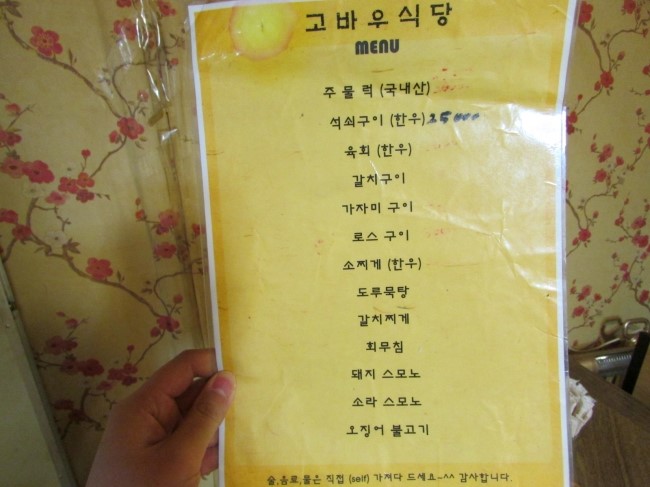 고바우식당
MENU
주 물 럭 (국내산)
석쇠구이 (한우) 25000
육회 (한우)
갈치구이
가자미 구이
로스 구이
소찌게 (한우)
도루묵탕
갈치찌게
회무침
돼지 스모노
소라 스모노
오징어 불고기
술,음료,물은 직접 (self) 가져다 드세요~^^ 감사합니다.